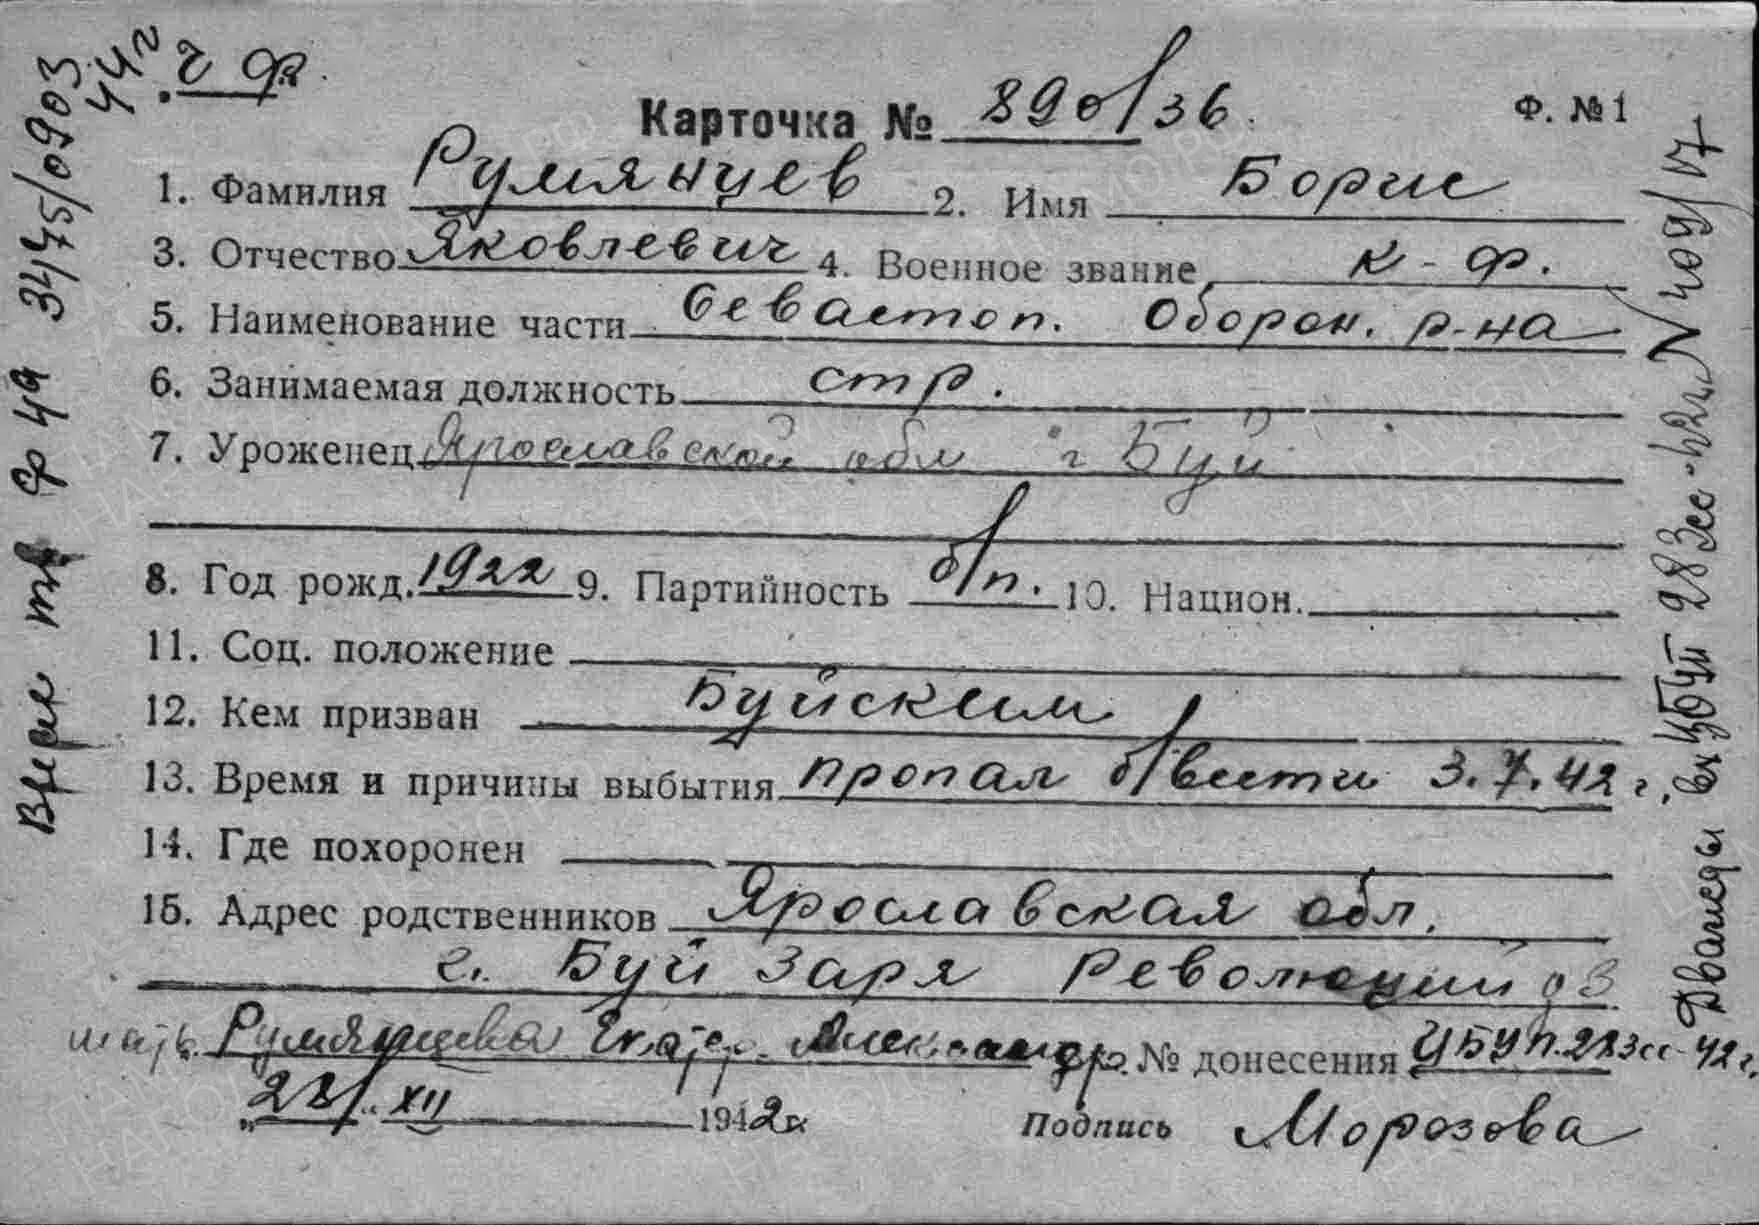 ч ф.
Карточка № 890/36. Ф. №1
1. Фамилия Румянцев 2. Имя Борис
3. Отчество Яковлевич 4. Военное звание к-ф.
5. Наименование части Севастоп. Оборон. р-на
6. Занимаемая должность стр.
7. Уроженец Ярославской обл г Буй
8. Год рожд. 1922 9. Партийность б/п. 10. Национ.
11. Соц. положение
12. Кем призван Буйским
13. Время и причины выбытия пропал б/вести 3.7.42 г.
14. Где похоронен
15. Адрес родственников Ярославская обл.
г. Буй Заря Революции д 3
мать Румянцева Екатер. Александр. № донесения ЦБУ п.283сс-42 г.
XII 1942г. Подпись Морозова
ф 49 3475/0903
44г
вх ЦБУ п 283сс-42г. №